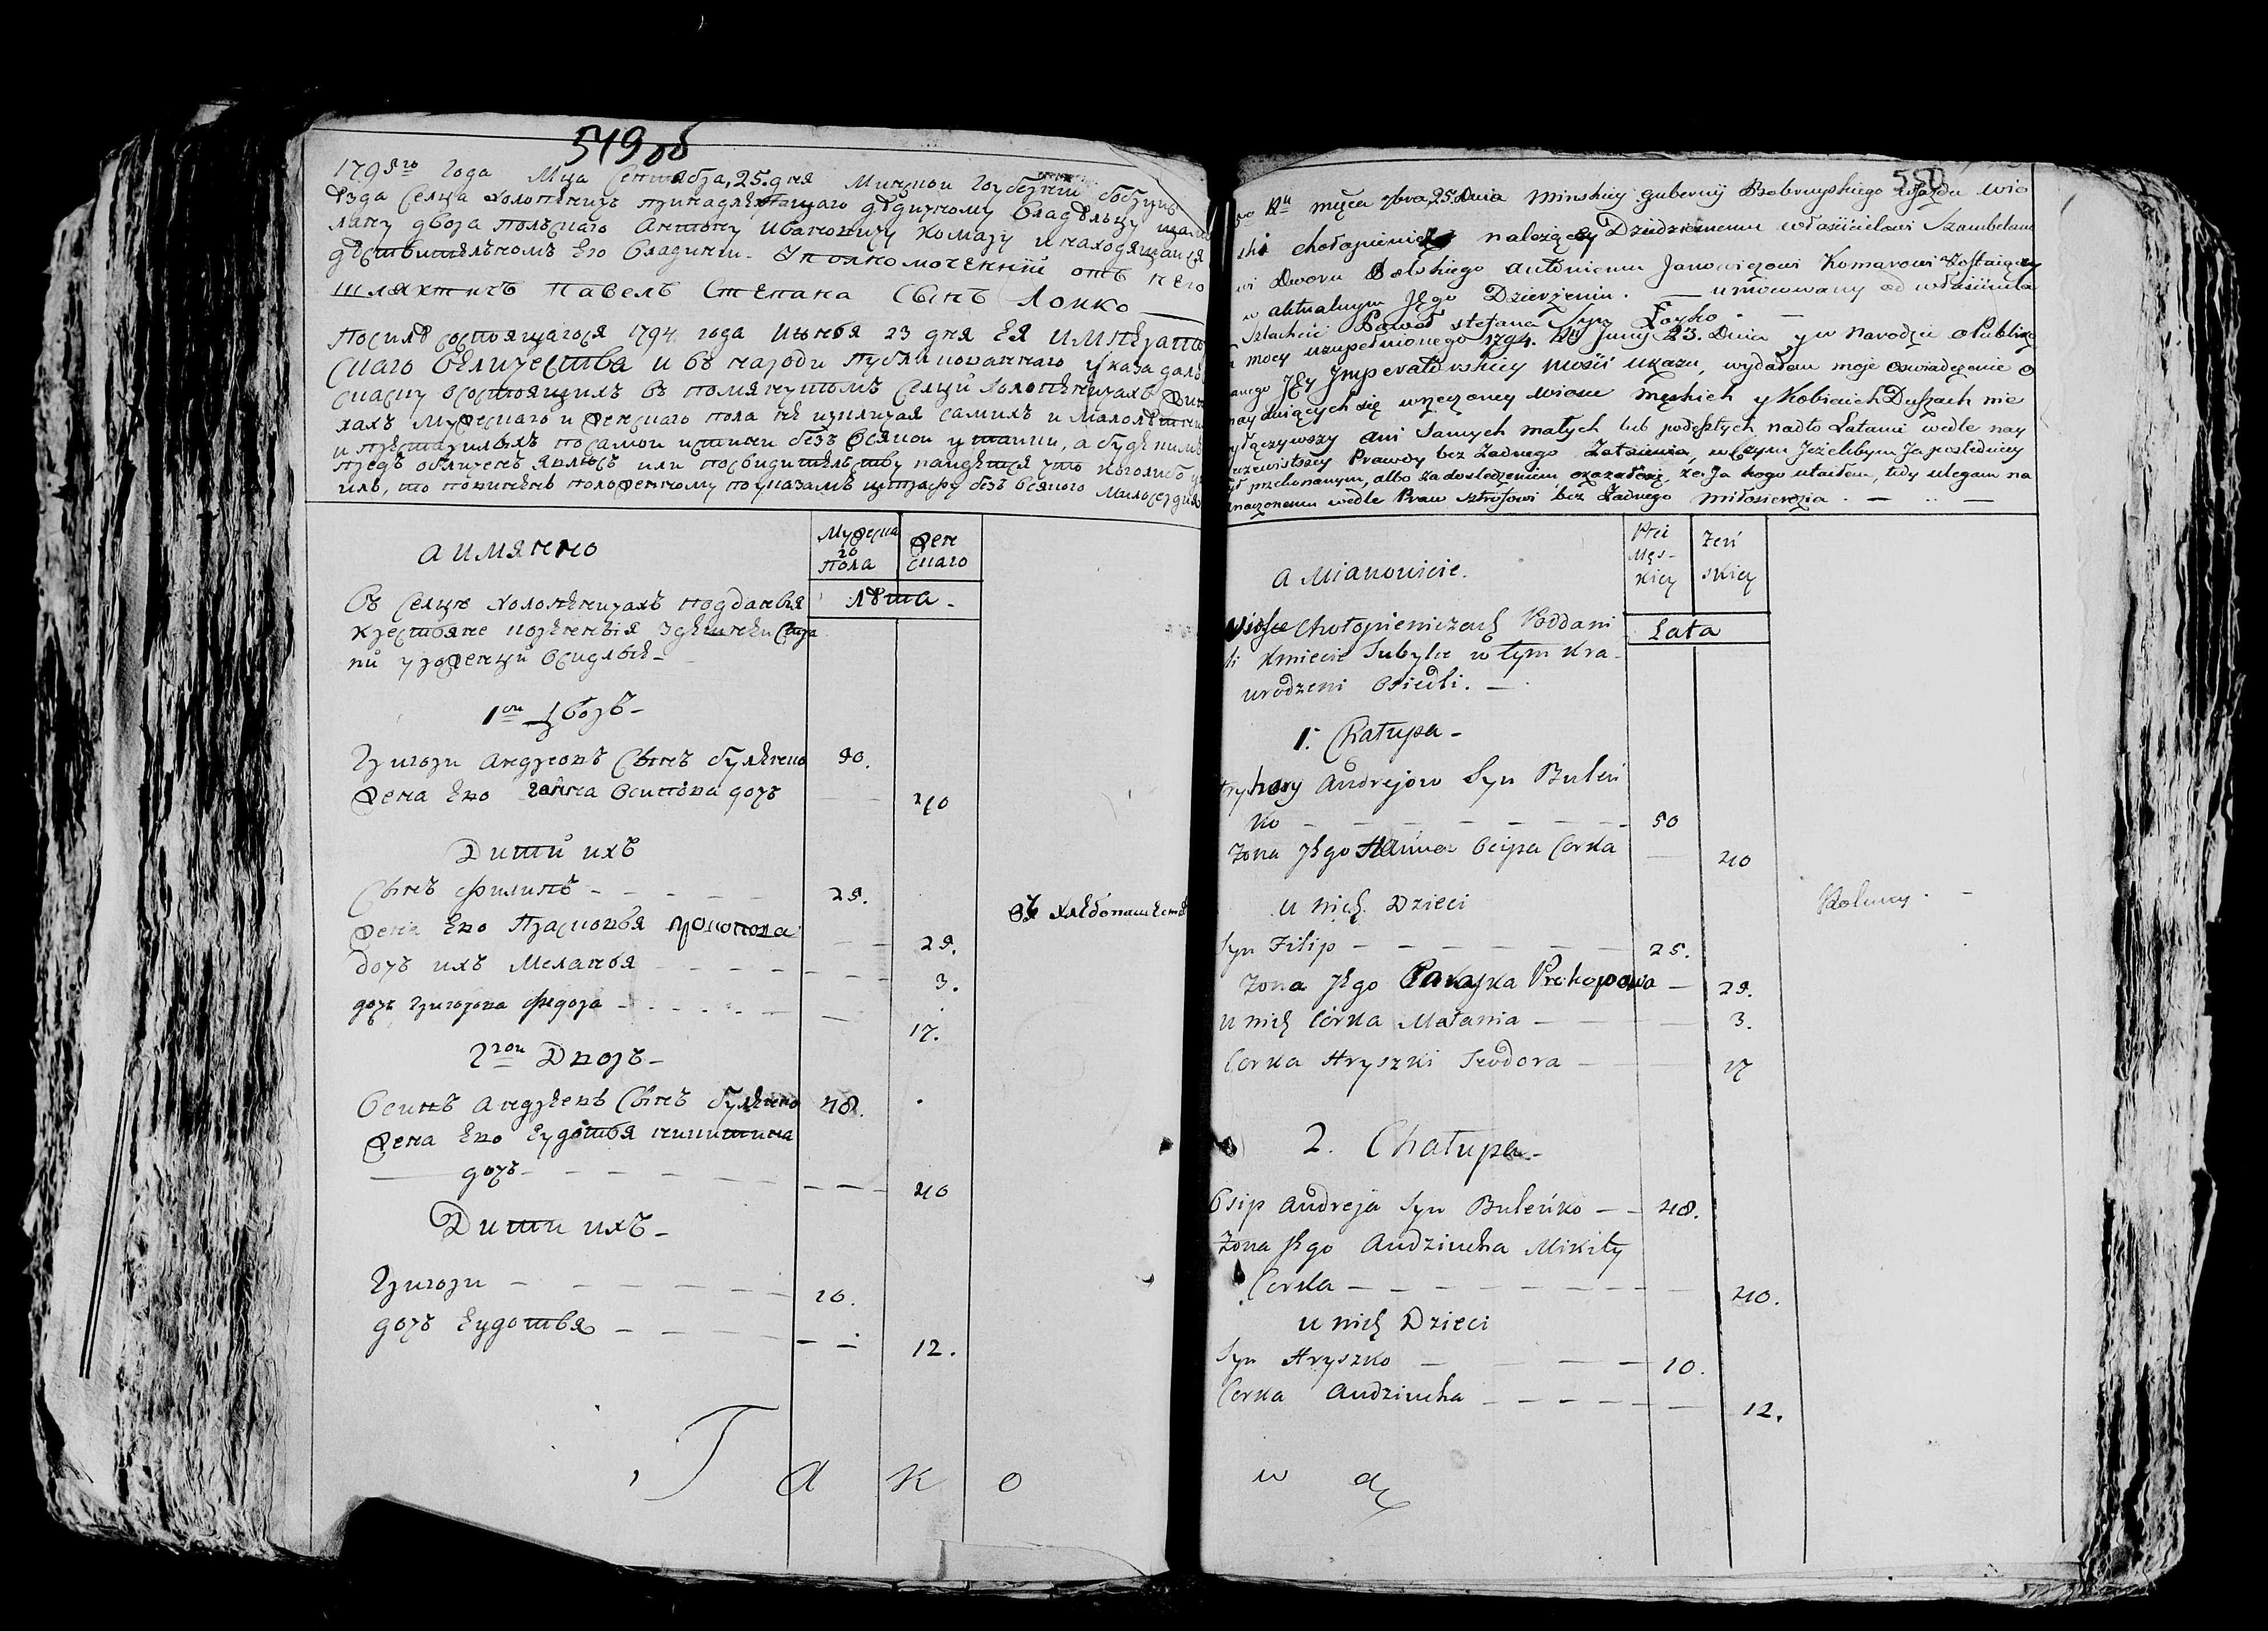 549 об
1795го Года Мца Сентября, 25. дня Минской Губернии Бобруйс
уезда Селца Холопеничъ принадлежащаго дедичному Владельцу шамбе
лану двора полскаго Антону Ивановичу Комару и находящаися
действителномъ Его Владении. Уполномоченний отъ него
шляхтичъ Павелъ Степана Сынъ Лойко
После состоящагося 1794 года Июня 23 дня ЕЯ ИМПЕРАТО
Скаго Величества и въ народи публикованнаго Указа далъ
скаску о состоящихъ въ помянутомъ селцѣ Холопеничахъ
хахъ мужескаго и женскаго пола не изключая самихъ и малолетни
и престарилыхъ по самой истини безъ всякой утайки, а буде кимъ
предъ обличенъ явлюсь или по свидителству найдется что коголибо у
илъ, то повиненъ положенному по указамъ штрафу безъ всякого Милосердия
а имянно
Мужеска
го
пола
Жен
скаго
Въ Селце Холопеничахъ подданныя
крестьяне коренныя здешней Стра
ни уроженци оседлыя
Лѣта
1ой Дворъ
Григори Андреовъ Сынъ Буленко 50.
Жена Ево Ганна Осипова дочъ 40
Дити ихъ
Сынъ Филипъ 25.
Жена Ево Прасковья Прокопова 29.
дочъ ихъ Меланья 3.
дочъ Григорова Федора 17.
въ хлебопашестве
2гой Дворъ
Осипъ Андреевъ Сынъ Буленко 48.
Жена Ево Еудотья Микитина
дочъ 40
Дити ихъ
Григори 10.
дочъ Еудотья 12.
Т а к о
550
Rku męca 7bra, 25. Dnia Minskiey Guberniy Bobruyskiego ujazdu Wio
ski Chołopienicz należącey Dziedzicznemu właścicielowi Szambelano
wi Dworu Polskiego Antoniemu Janowiczowi Komarowi zostaiącey
w aktualnym JEgo Dzierżeniu. umocowany od właściciela
Szlachcic Paweł Stefana Syn Łoyko
mocy uzupełnionego 1794. Rku Juny 23. Dnia y w Narodzie oPubliko
anego JEy Imperatorskiey Mości Ukazu, wydałem moje oswiadczenie o
nayduiących się wrzeczoney Wiosce męskich y Kobiecich Duszach nie
yłączywszy ani samych małych lub podeszłych nadto Latami wedle nay
rzewistszey Prawdy bez Żadnego Zataienia, wczym Jeżelibym Ja posledniey
ył przekonanym, albo za dosledzeniem okazałosię, że Ja kogo utaiłem, tedy ulegam na
znaczonemu wedle Praw sztrofowi bez Żadnego miłosierdzia
a Mianowicie.
Płci
Męs-
kiey
Żeń
skiey
Wiosce Chołopieniczach Poddani
li Kmiecie Tubylce w tym Kra
urodzeni Osiedli.
Lata
1. Chałupa
Hryhory Andrejow Syn Buleń
ko 50
Żona JEgo Hanna Osipa Corka 40
u nich Dzieci
Syn Filip 25.
Żona JEgo Paraska Prokopowa 29.
u nich Córka Małania 3.
Corka Hryszki Teodora 17
Rolnicy
2. Chałupa
Osip Andreja Syn Buleńko 48.
Żona JEgo Audziucha Mikity
Corka 40.
u nich Dzieci
Syn Hryszko 10.
Corka Audziucha 12.